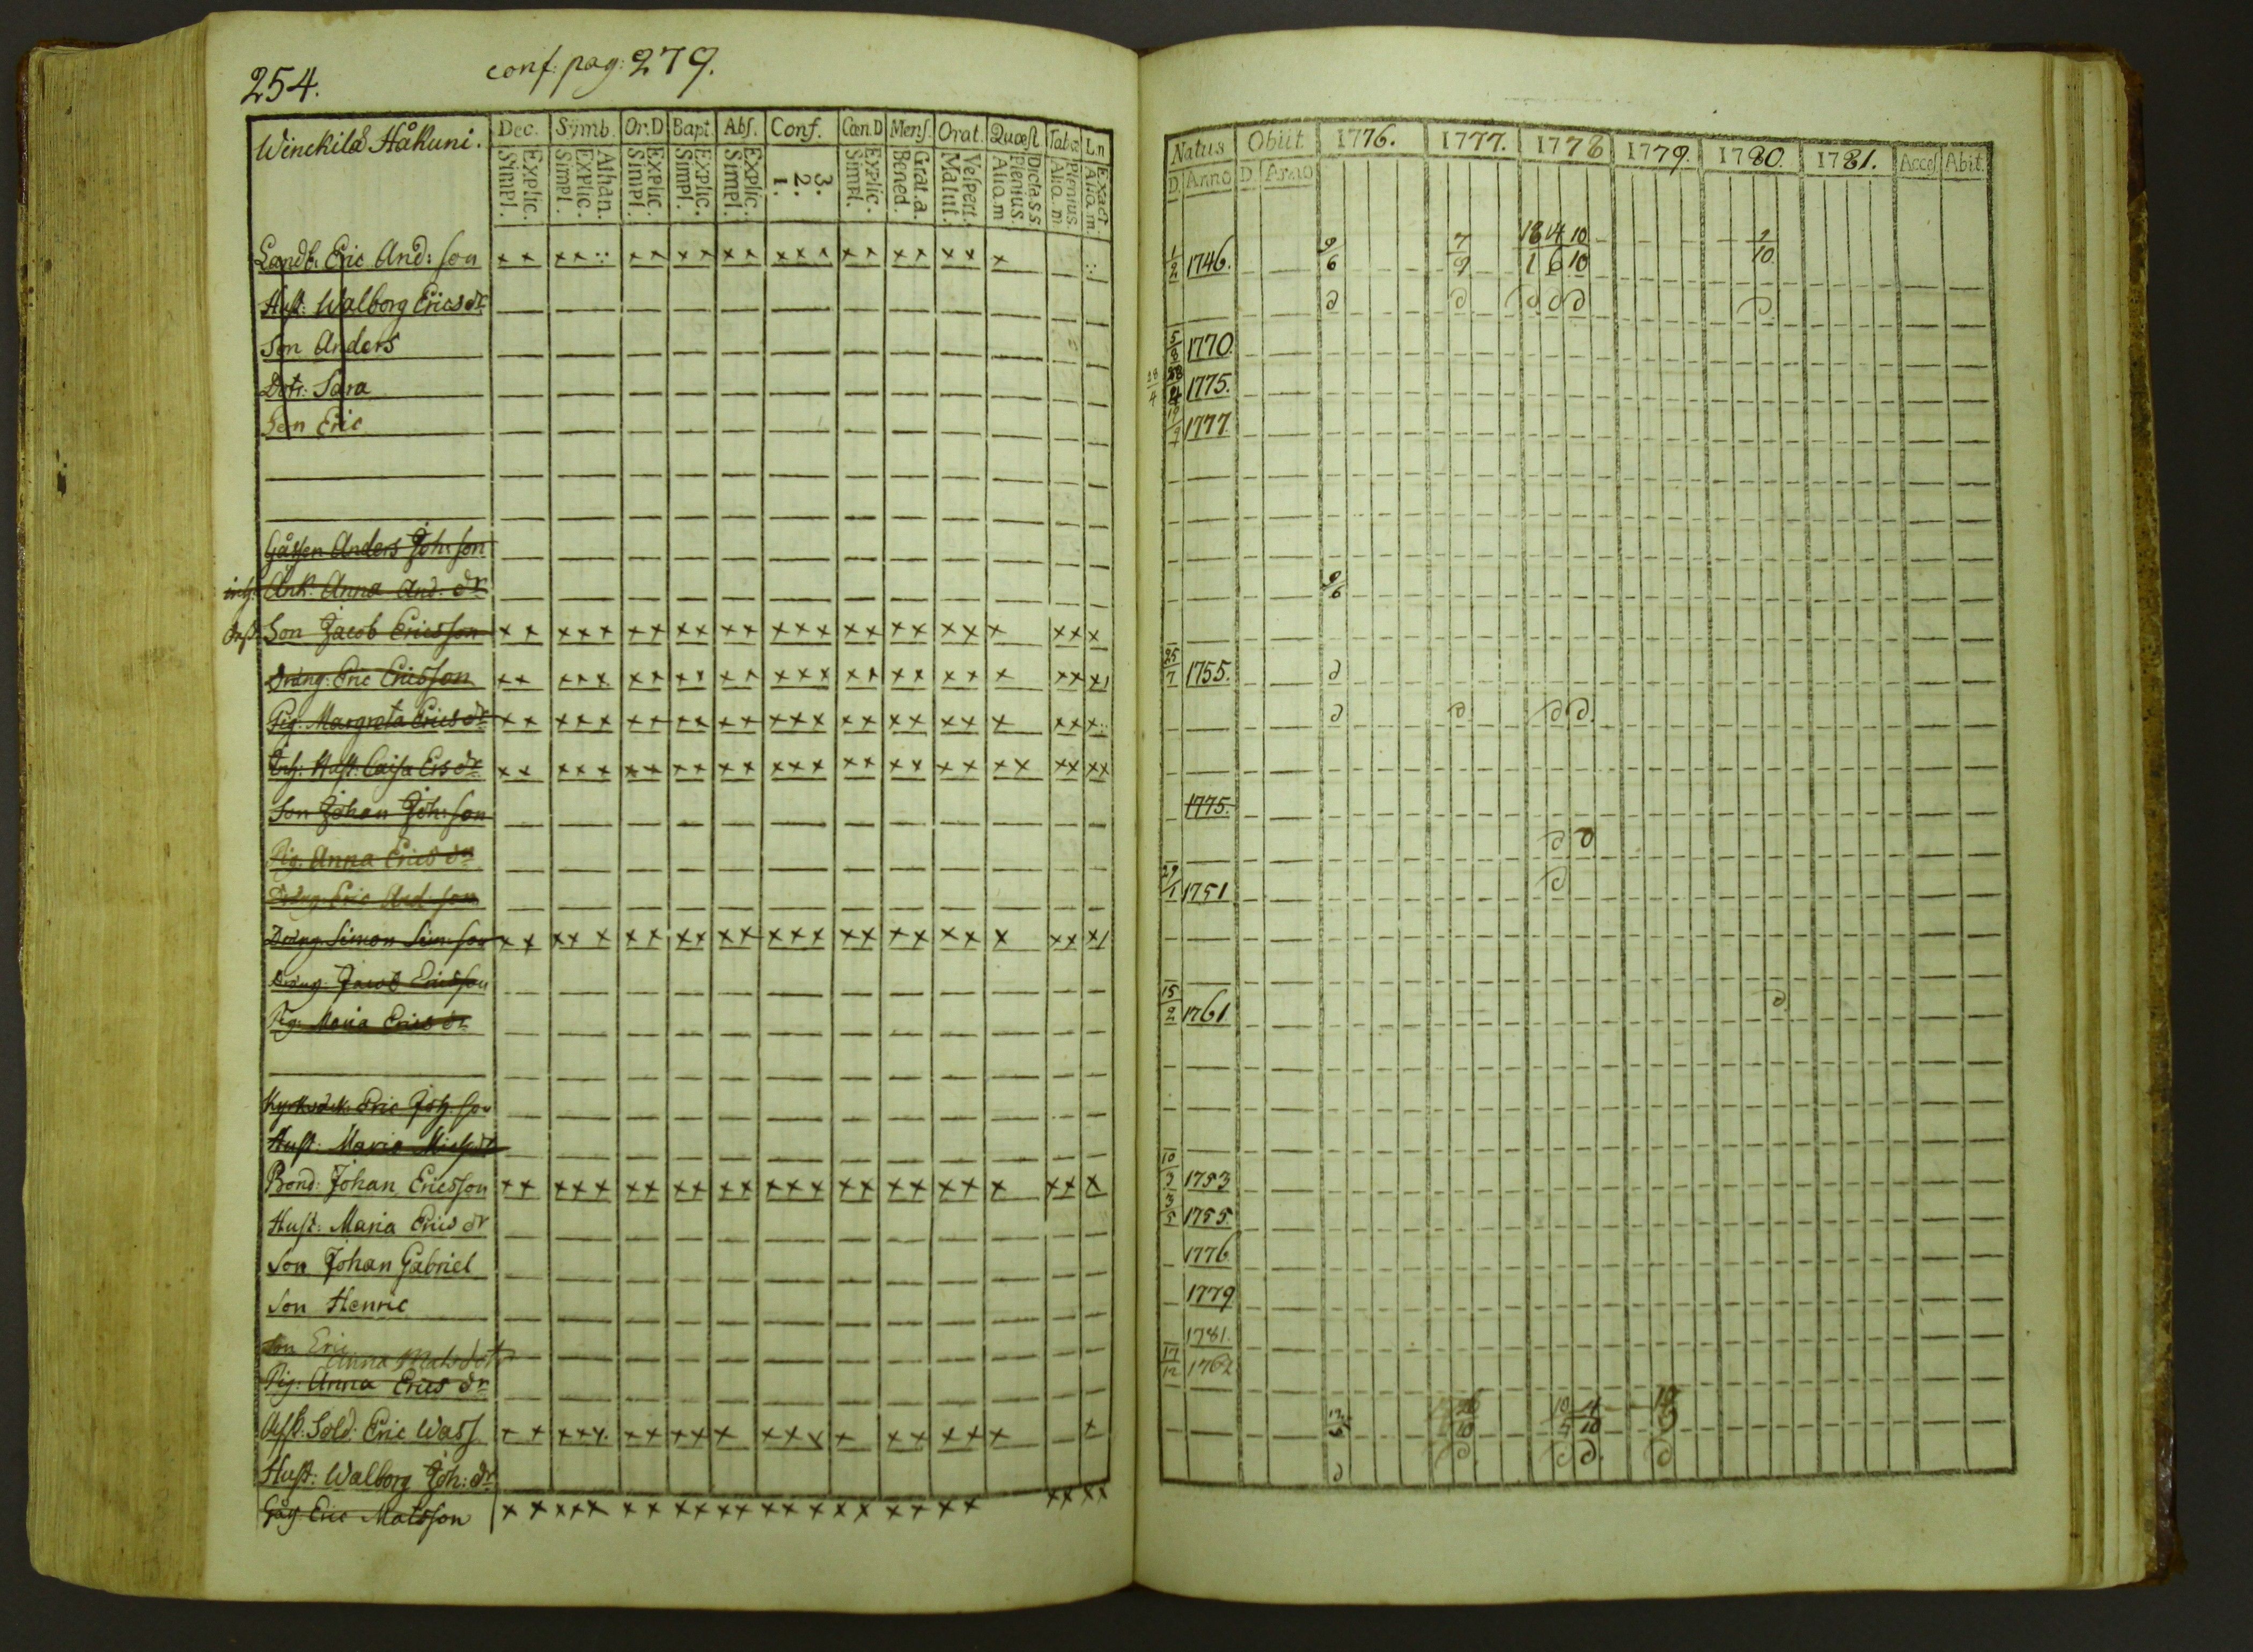 254.
conf: pag: 279.
Winckilä Håkuni.
Dec. Symb. Or.D Bapt. Abs. Conf. Cœn.D Mens. Orat. Quæst Tab.œ L.n
Simpl. Explic. Simpl. Explic. Athan. Simpl. Explic. Simpl. Explic. Simpl. Explic. 1. 2. 3. Simpl. Explic. Bened. Grat.a. Matut. Vespert. Aliq.m Plenius. Dicta.s.s Aliq.m Plenius. Aliq.m Exact
Landb. Eric And: son x x x x x x x x x x x x x x x x x x x x
Hust: Walborg Erics dr
Son Anders
Dotr: Sara
Son Eric
Gåssen Anders Joh: son
inh: Ank: Anna And. dr
Son Jacob Ericsson x x x x x x x x x x x x x x x x x x x x x x x
Dräng: Eric Ericsson x x x x x x x x x x x x x x x x x x x x x x x
Pig: Margreta Erics dr x x x x x x x x x x x x x x x x x x x x x x x
Inh: Hust: Caisa Ers dr x x x x x x x x x x x x x x x x x x x x x x x x x
Son Johan Joh: son
Pig. Anna Erics dr
Dräng: Eric And: son
Dräng Simon Sim: son x x x x x x x x x x x x x x x x x x x x x x x
Dräng: Jacob Ericsson
Pig: Maria Erics dr
Eric Joh: son
Hust: Maria
Bond: Johan Ericsson x x x x x x x x x x x x x x x x x x x x x x x
Hust: Maria Erics dr
Son Johan Gabriel
Son Henric
Son Eric
Anna Matsdotr
Pig: Anna Erics dr
Afsk: Sold: Eric Wass x x x x x x x x x x x x x x x x x x x x
Hust: Walborg Joh: dr
Eric Matsson x x x x x x x x x x x x x x x x x x x x x x x x
Natus Obiit 1776. 1777. 1778 1779. 1780. 1781. Acces Abit
D. Anno D. Anno
1/2 1746. 9/6 7/9 18/1 14/6 10/10 1/10
5/8 1770.
28/4 1775.
1777
9/6
25/7 1755.
1775.
29/1 1751
15/2 1761
10/3 1753
3/5 1755
1776
1779
1781.
17/12 1762